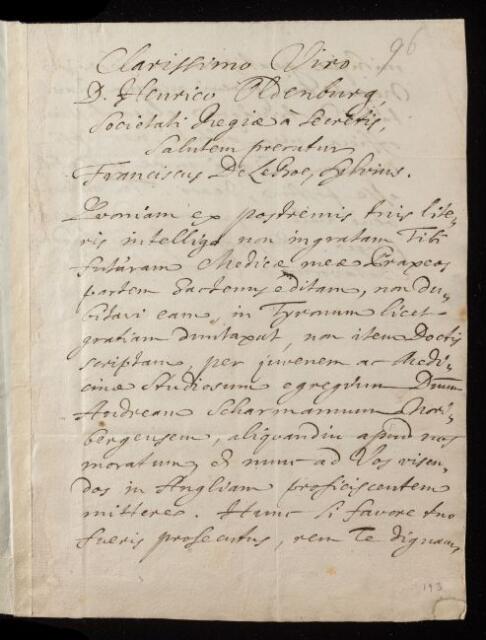 96
Clarissimo Viro
D. Henrico Oldenburg,
Societati Regiæ à Secretis,
Salutem precatur
Franciscus DeLeBoe, Sylvius.
Quoniam ex postremis tuis lite-
ris intelligo non ingratam Tibi
futuram Medicæ meæ Praxeos
partem hactenus editam, non du-
bitavi eam, in Tyronum licet
gratiam duntaxat, non item Doctis
scriptam, per juvenem ac Medi-
cinæ Studiosum egregium Dnum
Andream Scharmannum Nori-
bergensem, aliquandiu apud nos
moratum, & nunc ad Vos visen-
dos in Angliam proficiscentem
mittere. Hunc si favore tuo
fueris prosecutus, rem Te dignam,
193